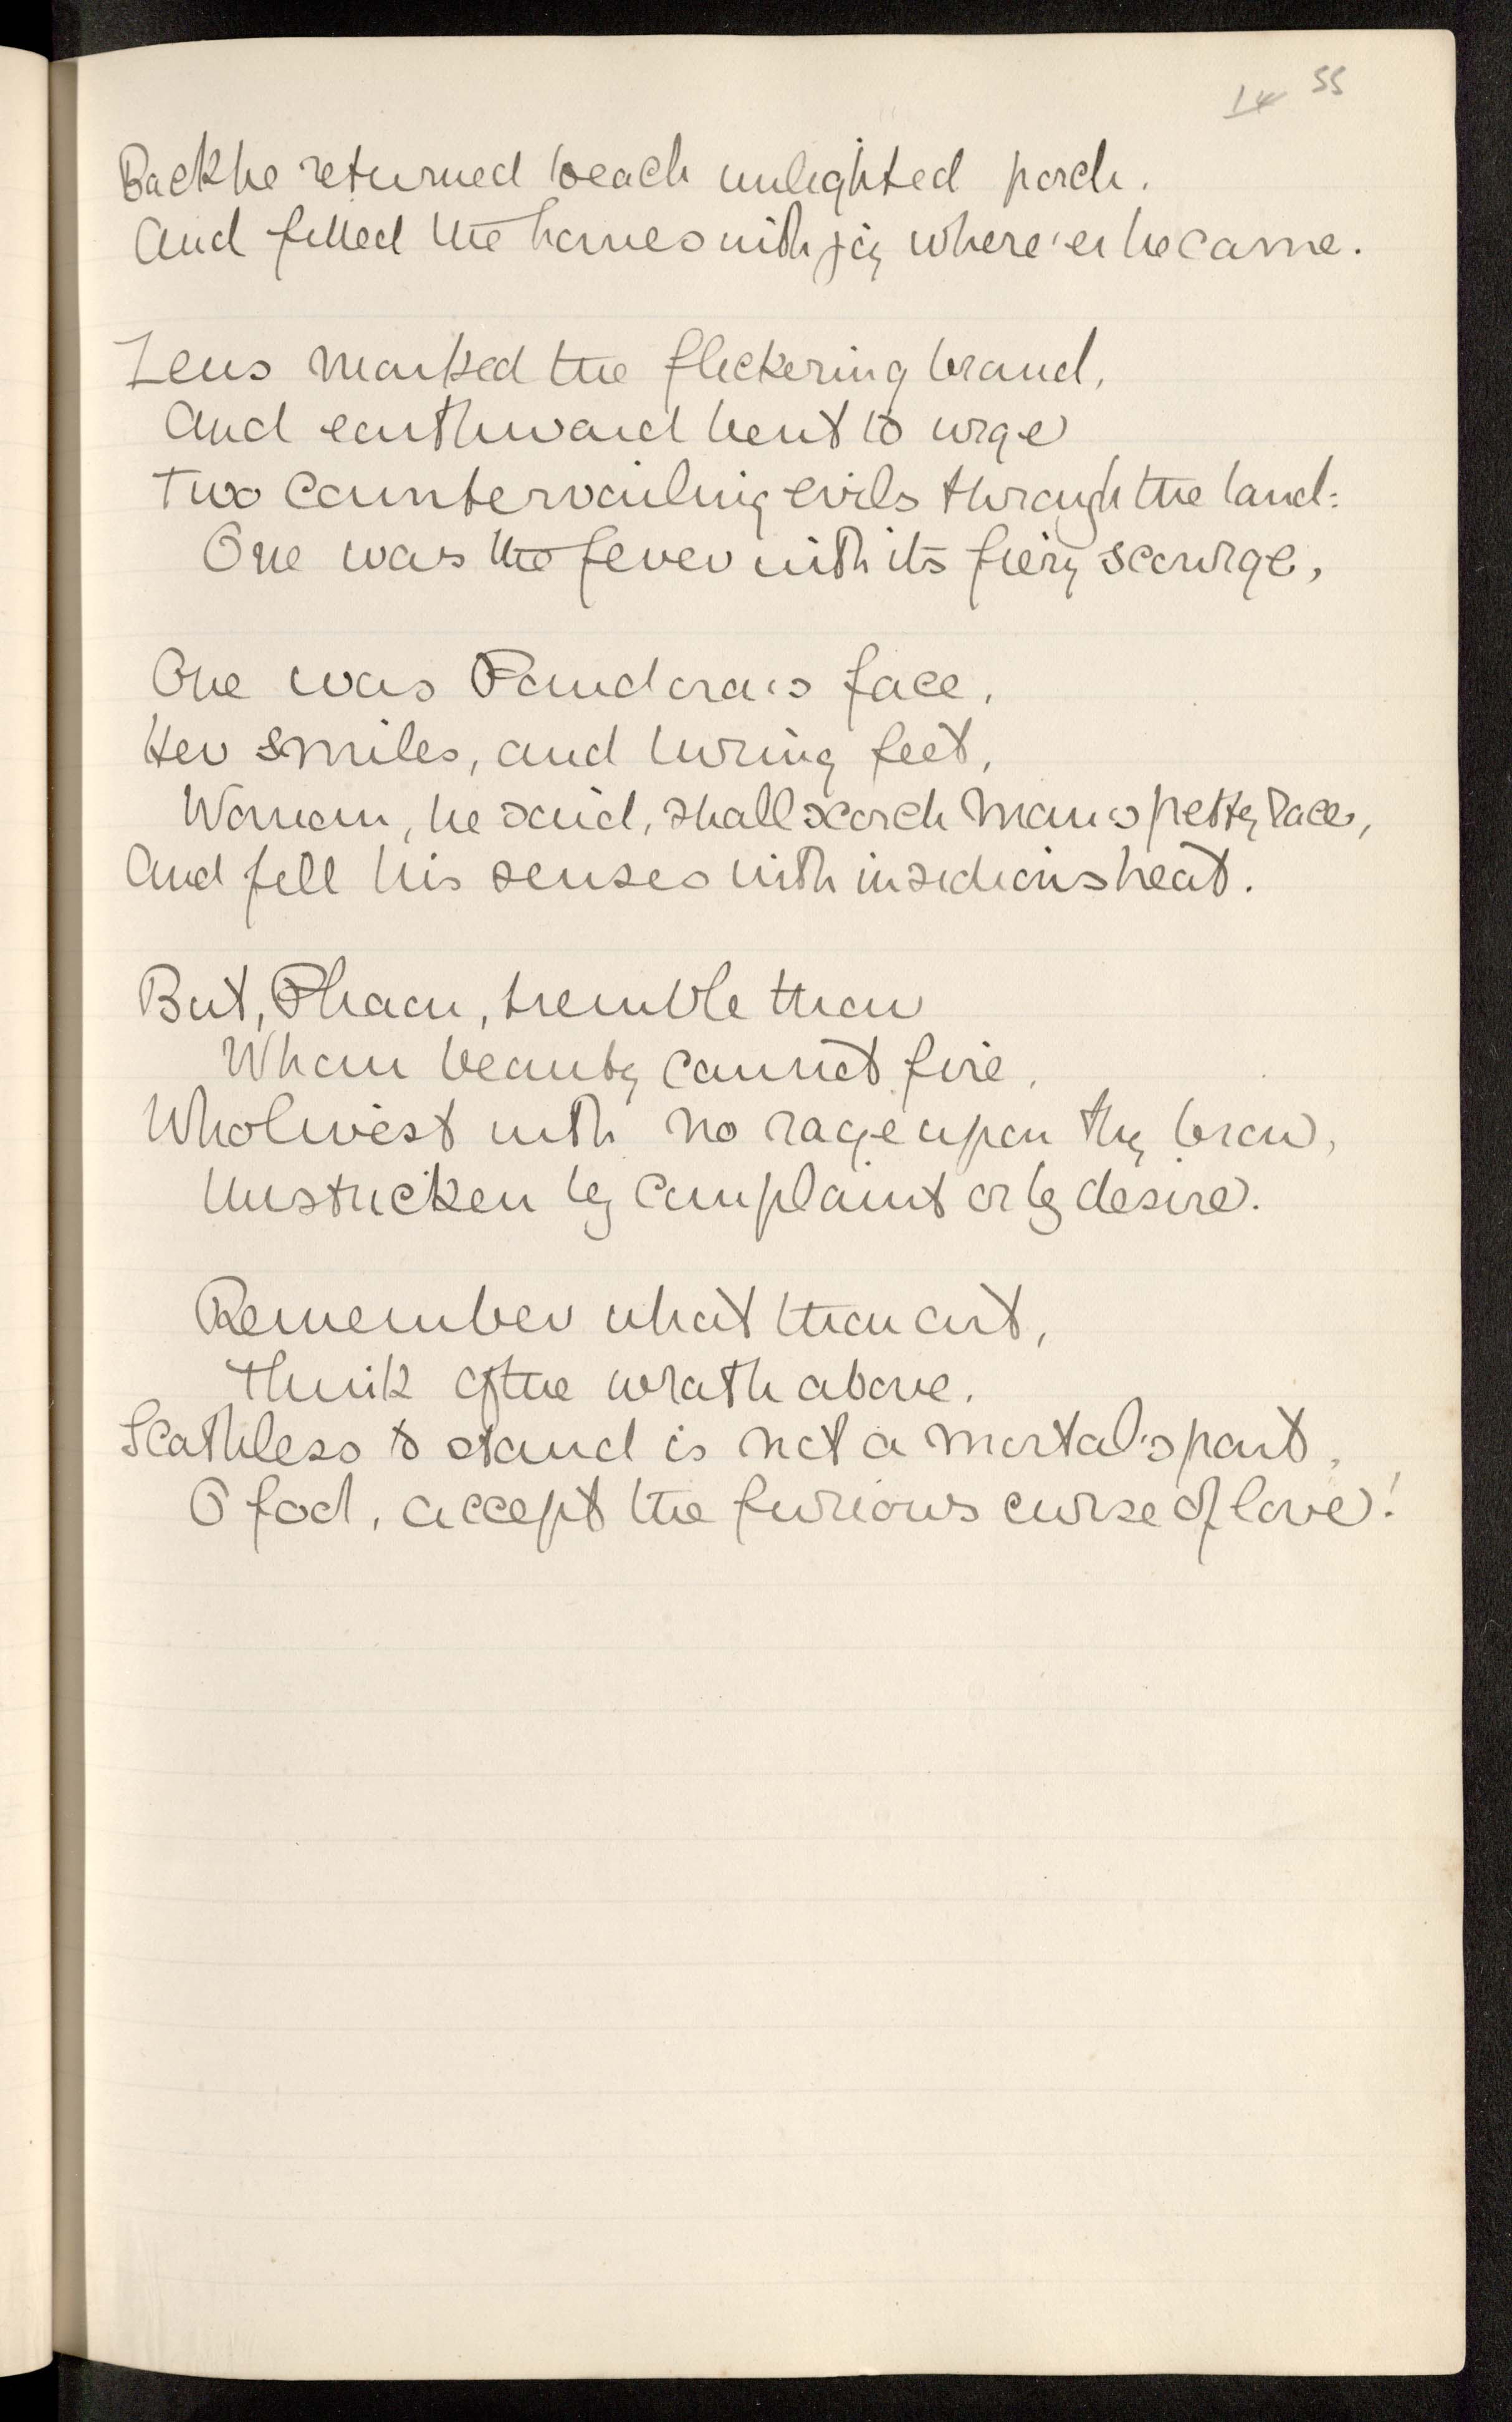 14 55
Back he returned to each unlighted porch.
And filled the homes with joy where'er he came.
Zeus marked the flickering brand,
And earthward bent to urge
Two countervailing evils through the land:
One was the fever with its fiery scourge,
One was Pandora's face,
Her smiles, and luring feet,
Woman, he said, shall scorch man's petty race,
And fill his senses with insidious heat.
But, Phaon, tremble thou
Whom beauty cannot fire,
Who livest with no rage upon thy brow,
Unstricken by complaint or by desire.
Remember what thou art,
Think of the wrath above.
Scathless to stand is not a mortal's part,
O fool, accept the furious curse of love!